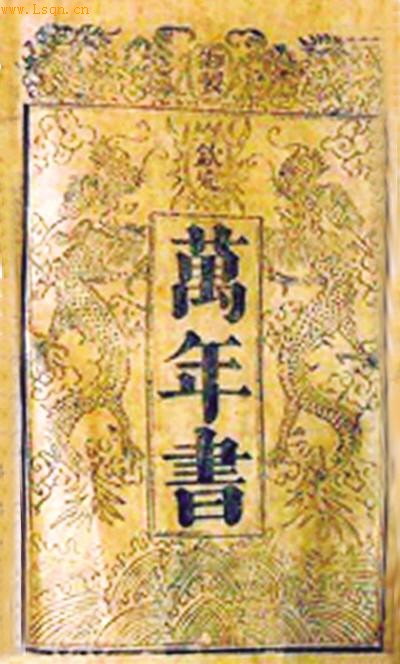 www.Lsqn.cn
御製
欽定
萬年書